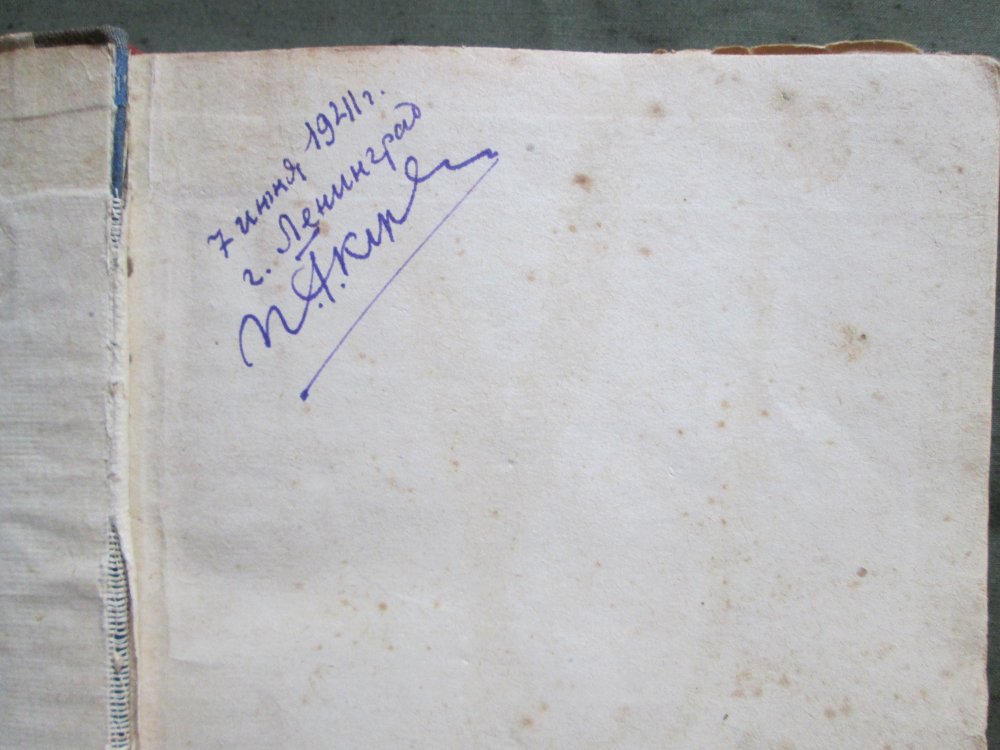 7 июня 1941 г.
г. Ленинград